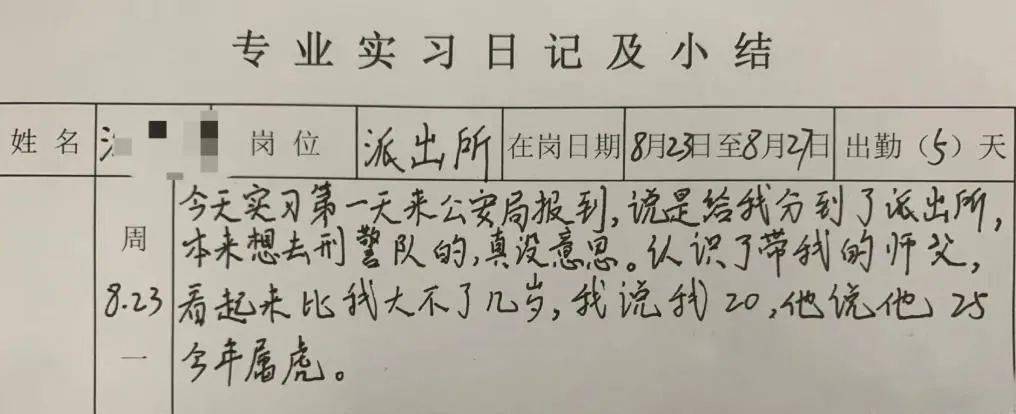 专业实习日记及小结
姓名 岗位 派出所 在岗日期 8月23日至8月27日 出勤（5）天
周一 8.23
今天实习第一天来公安局报到，说是给我分到了派出所，
本来想去刑警队的，真没意思。认识了带我的师父，
看起来比我大不了几岁，我说我20，他说他25
今年属虎。